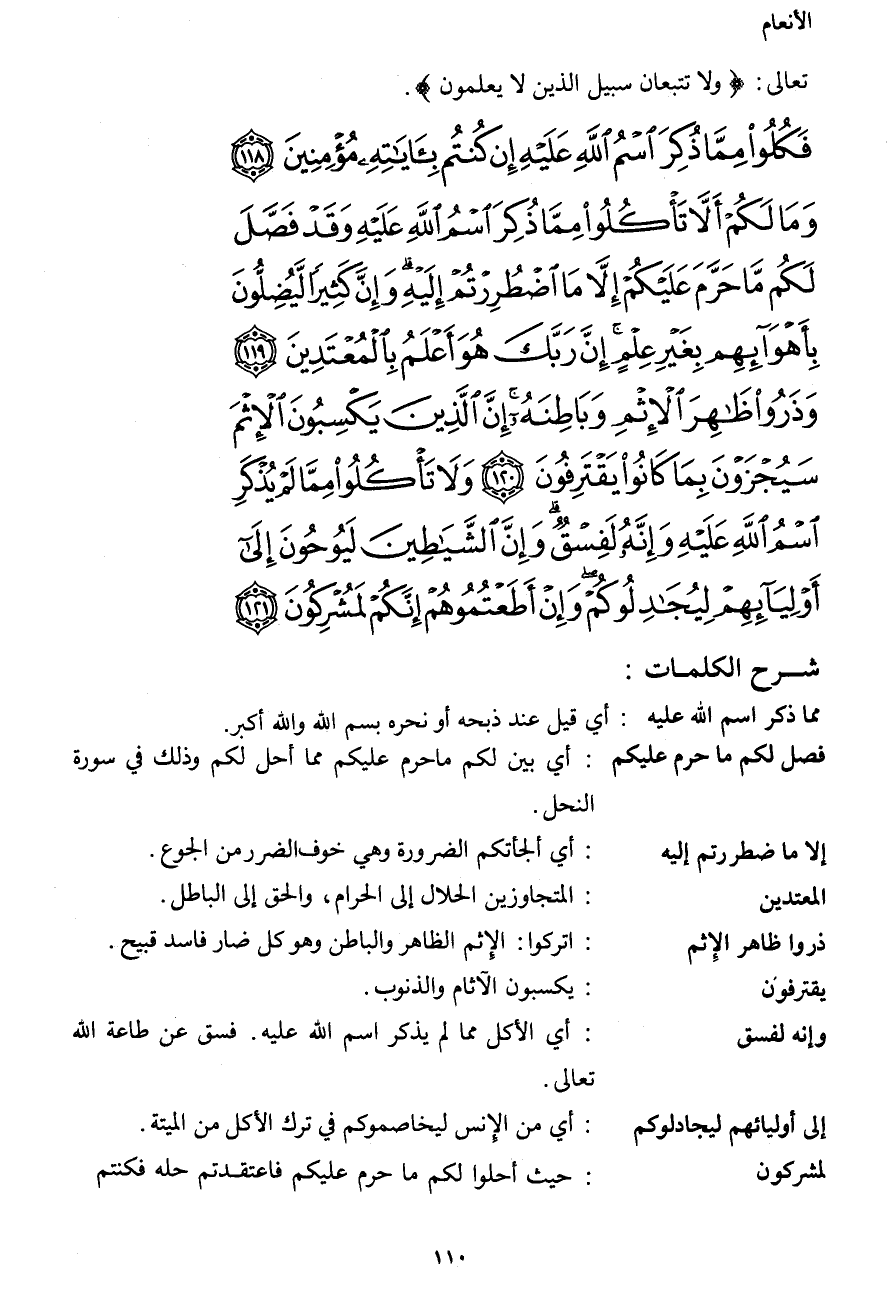 الأنعام
تعالى: ﴿ ولا تتبعان سبيل الذين لا يعلمون ﴾.
فَكُلُوا۟ مِمَّا ذُكِرَ ٱسْمُ ٱللَّهِ عَلَيْهِ إِن كُنتُم بِـَٔايَـٰتِهِۦ مُؤْمِنِينَ ١١٨
وَمَا لَكُمْ أَلَّا تَأْكُلُوا۟ مِمَّا ذُكِرَ ٱسْمُ ٱللَّهِ عَلَيْهِ وَقَدْ فَصَّلَ
لَكُم مَّا حَرَّمَ عَلَيْكُمْ إِلَّا مَا ٱضْطُرِرْتُمْ إِلَيْهِ ۗ وَإِنَّ كَثِيرًا لَّيُضِلُّونَ
بِأَهْوَآئِهِم بِغَيْرِ عِلْمٍ ۚ إِنَّ رَبَّكَ هُوَ أَعْلَمُ بِٱلْمُعْتَدِينَ ١١٩
وَذَرُوا۟ ظَـٰهِرَ ٱلْإِثْمِ وَبَاطِنَهُۥٓ ۚ إِنَّ ٱلَّذِينَ يَكْسِبُونَ ٱلْإِثْمَ
سَيُجْزَوْنَ بِمَا كَانُوا۟ يَقْتَرِفُونَ ١٢٠ وَلَا تَأْكُلُوا۟ مِمَّا لَمْ يُذْكَرِ
ٱسْمُ ٱللَّهِ عَلَيْهِ وَإِنَّهُۥ لَفِسْقٌ ۗ وَإِنَّ ٱلشَّيَـٰطِينَ لَيُوحُونَ إِلَىٰٓ
أَوْلِيَآئِهِمْ لِيُجَـٰدِلُوكُمْ ۖ وَإِنْ أَطَعْتُمُوهُمْ إِنَّكُمْ لَمُشْرِكُونَ ١٢١
شـرح الكلمـات :
مما ذكر اسم الله عليه : أي قيل عند ذبحه أو نحره بسم الله والله أكبر.
فصل لكم ما حرم عليكم : أي بين لكم ماحرم عليكم مما أحل لكم وذلك في سورة
النحل.
إلا ما ضطررتم إليه : أي ألجأتكم الضرورة وهي خوف الضرر من الجوع.
المعتدين : المتجاوزين الحلال إلى الحرام، والحق إلى الباطل.
ذروا ظاهر الإثم : اتركوا: الإثم الظاهر والباطن وهو كل ضار فاسد قبيح.
يقترفون : يكسبون الآثام والذنوب.
وإنه لفسق : أي الأكل مما لم يذكر اسم الله عليه. فسق عن طاعة الله
تعالى.
إلى أوليائهم ليجادلوكم : أي من الإنس ليخاصموكم في ترك الأكل من الميتة.
لمشركون : حيث أحلوا لكم ما حرم عليكم فاعتقـدتم حله فكنتم
١١٠